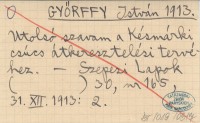 GYÖRFFY István 1913.
Utolsó szavam a Késmárki
csúcs átkeresztelési tervé-
hez. – Szepesi Lapok
( ) 30, no 165.
31. XII. 1913: 2.